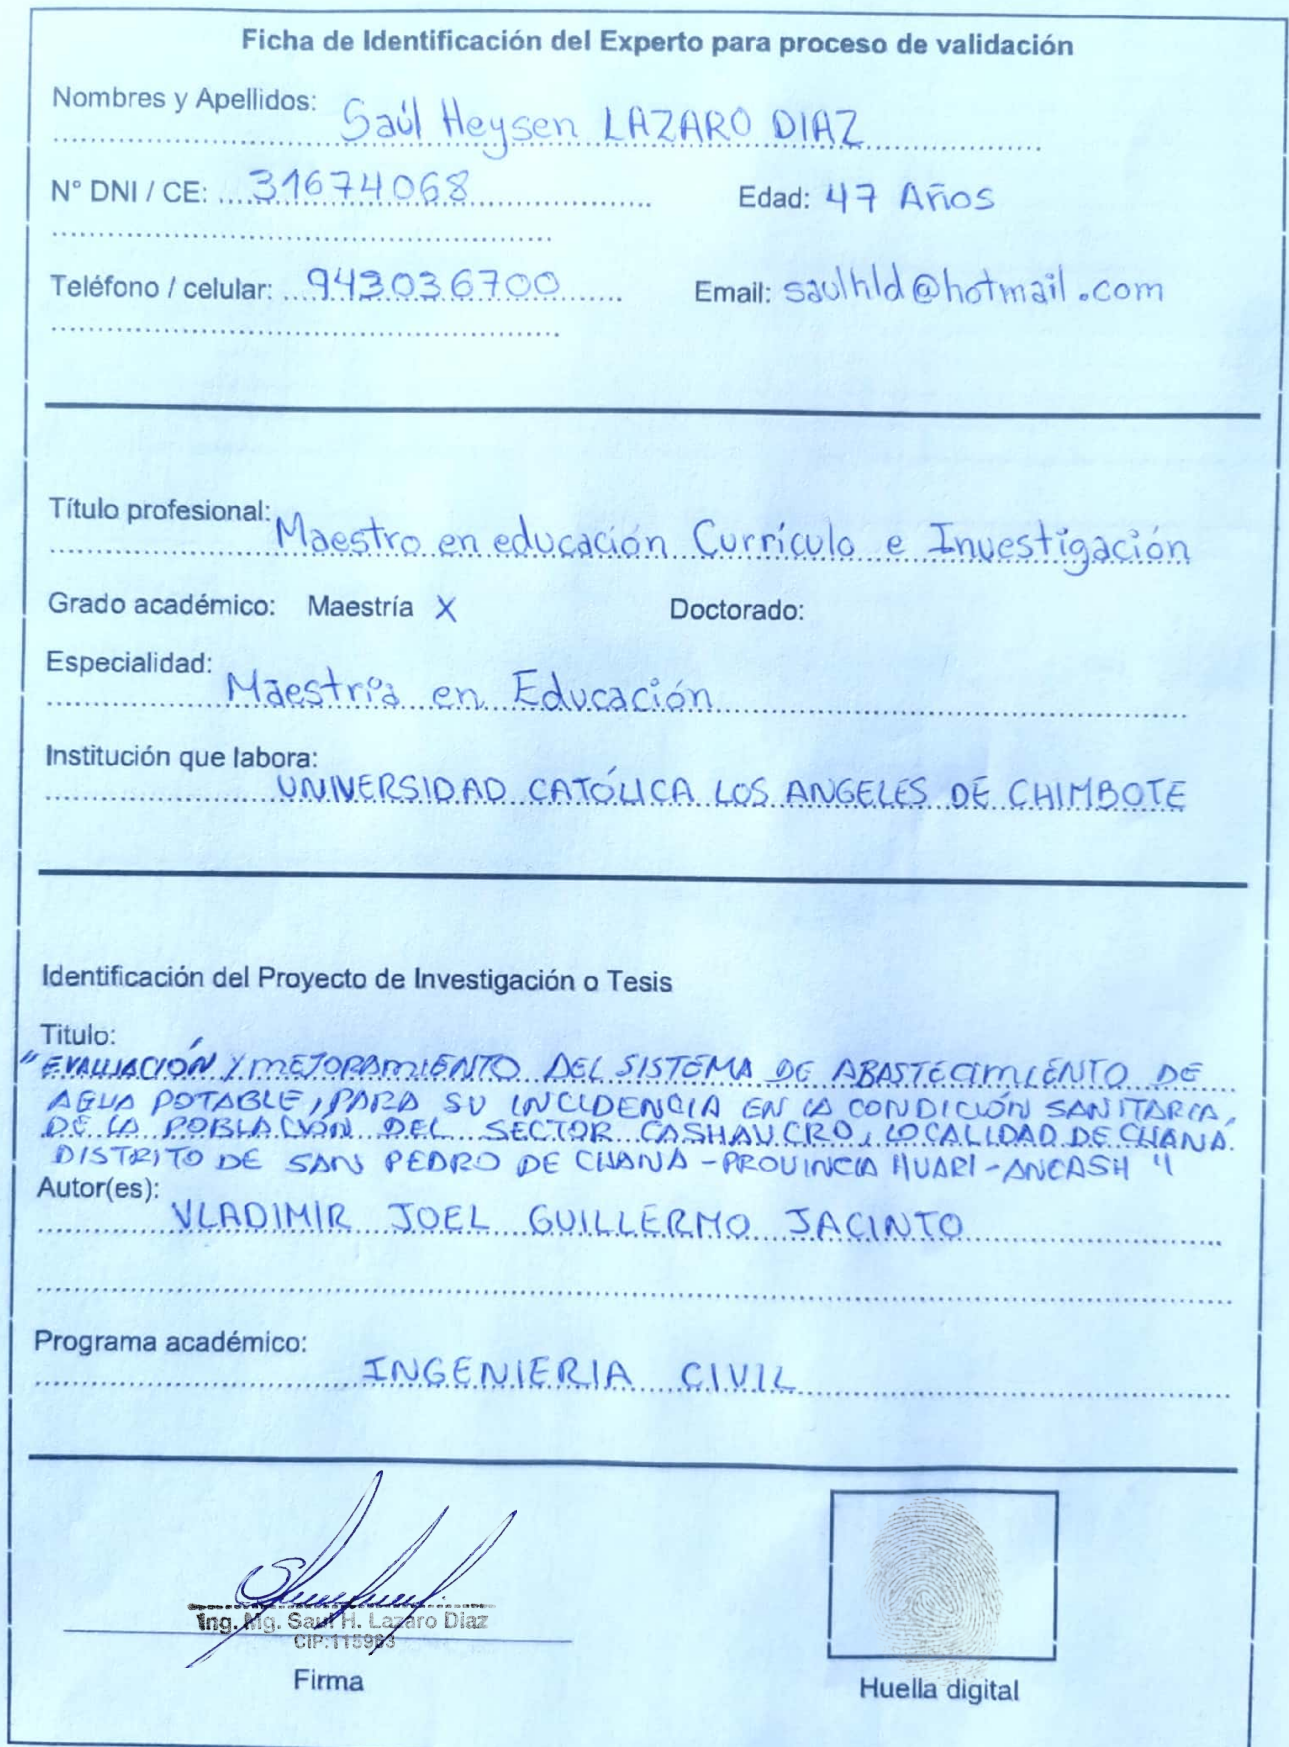 Ficha de Identificación del Experto para proceso de validación
Nombres y Apellidos: Saúl Heysen LAZARO DIAZ
N° DNI / CE: 31674068 Edad: 47 Años
Teléfono / celular: 943036700 Email: saulhld@hotmail.com
Título profesional: Maestro en educación Currículo e Investigación
Grado académico: Maestría X Doctorado:
Especialidad: Maestría en Educación
Institución que labora: UNIVERSIDAD CATÓLICA LOS ANGELES DE CHIMBOTE
Identificación del Proyecto de Investigación o Tesis
Titulo:
"EVALUACIÓN Y MEJORAMIENTO DEL SISTEMA DE ABASTECIMIENTO DE
AGUA POTABLE, PARA SU INCIDENCIA EN LA CONDICIÓN SANITARIA,
DE LA POBLACIÓN DEL SECTOR CASHAUCRO, LOCALIDAD DE CHANÁ.
DISTRITO DE SAN PEDRO DE CHANÁ - PROVINCIA HUARI - ANCASH"
Autor(es): VLADIMIR JOEL GUILLERMO JACINTO
Programa académico: INGENIERIA CIVIL
Ing. Mg. Saul H. Lazaro Diaz
Firma
Huella digital